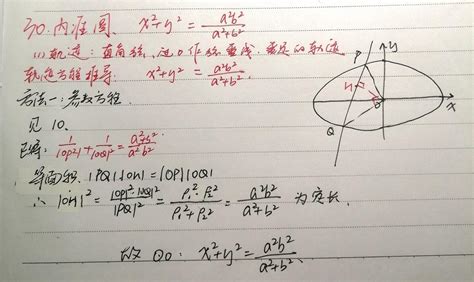 30. 内准圆. x²+y² = a²b²/(a²+b²)
(1) 轨迹: 直角弦, 过O作弦垂线. 垂足的轨迹
轨迹方程推导. x²+y² = a²b²/(a²+b²).
方法一: 参数方程.
见 10.
1/|OP|²+1/|OQ|²=(a²+b²)/(a²b²)
等面积. |PQ||OH|=|OP||OQ|
∴ |OH|² = |OP|²·|OQ|²/|PQ|² = ρ₁²·ρ₂²/(ρ₁²+ρ₂²) = a²b²/(a²+b²) 为定长.
故 ⊙O: x²+y² = a²b²/(a²+b²).
P
y
H
O
x
Q